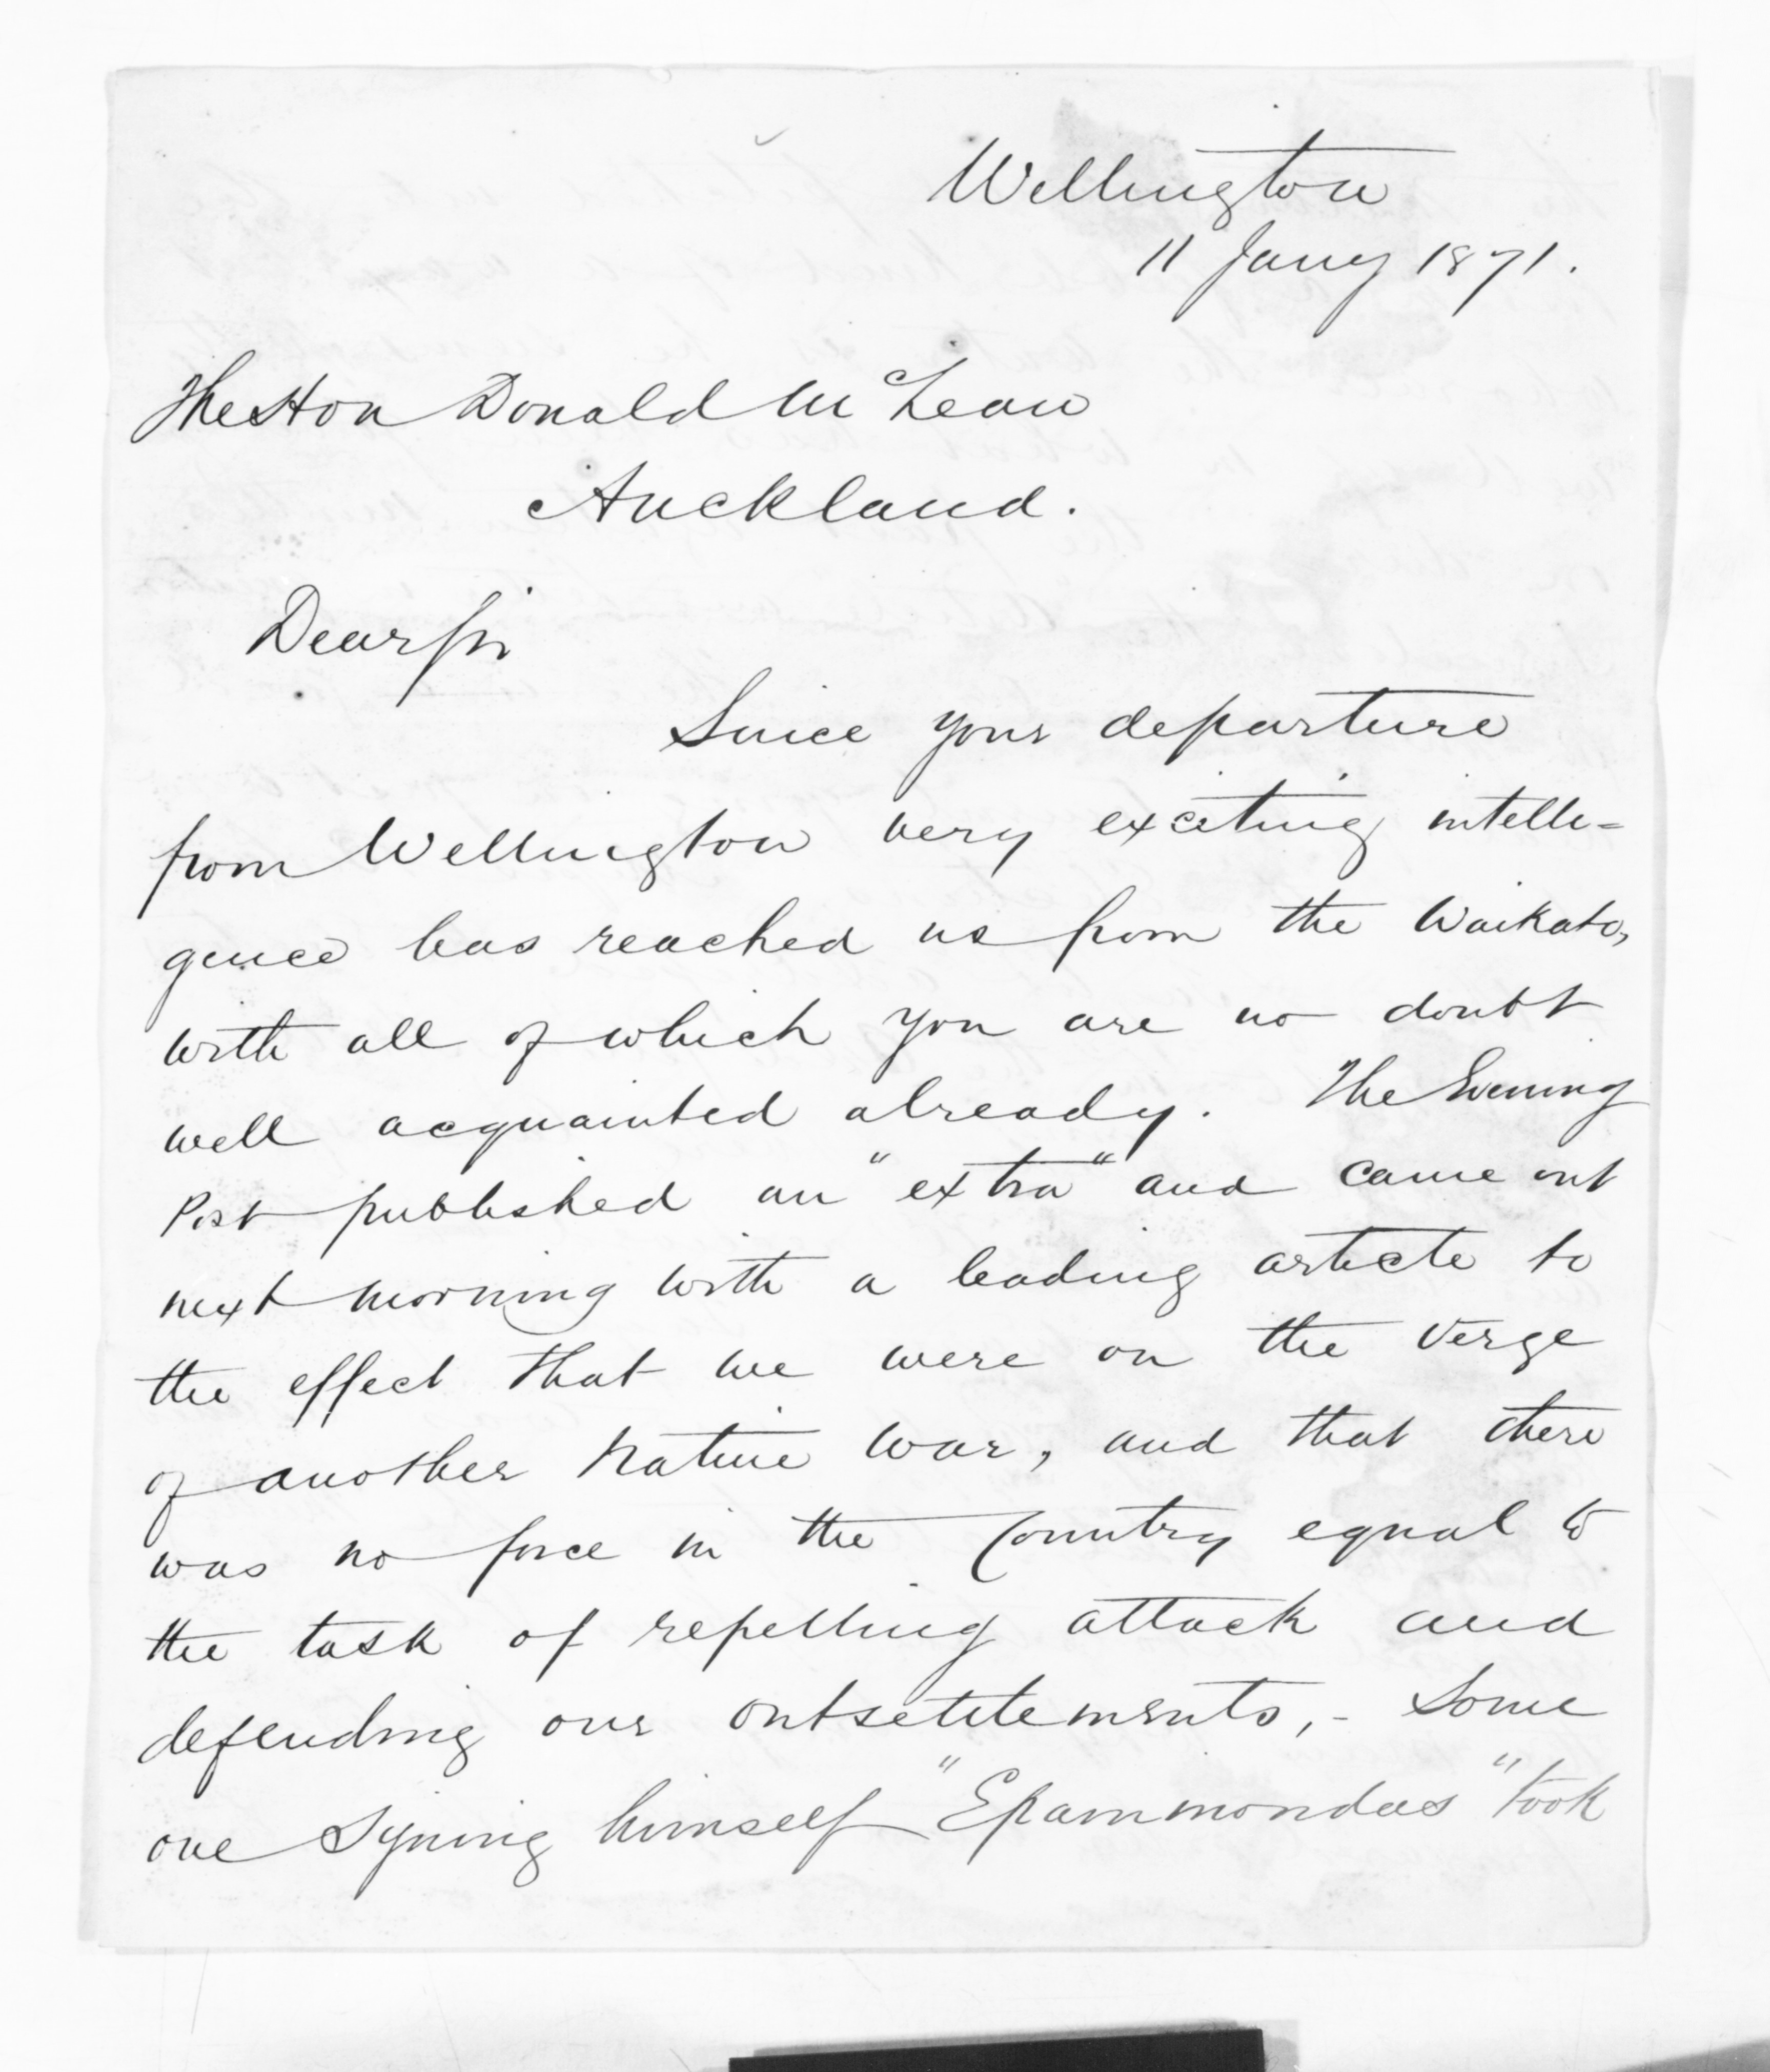 Wellington
11 Jany 1871.
The Hon Donald McLean
Auckland.
Dear Sir
Since your departure
from Wellington very exciting intelli=
gence has reached us from the Waikato,
with all of which you are no doubt
well acquainted already. The Evening
Post published an "extra" and came out
next morning with a leading article to
the effect that we were on the verge
of another Native War, and that there
was no force in the Country equal to
the task of repelling attack and
defending our outsettlements,- Some
one signing himself "Epammondas" took